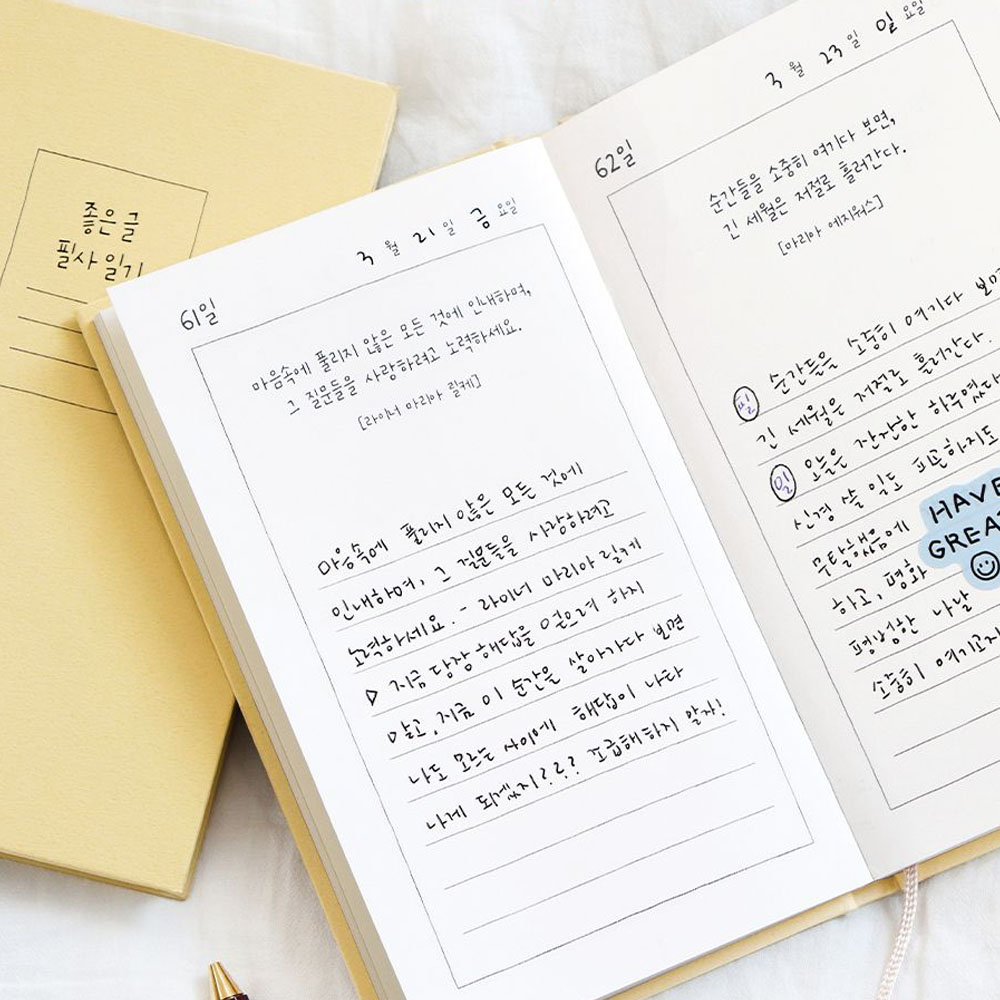 좋은 글
필사 일기
61일
3 월 21 일 금 요일
마음속에 풀리지 않은 모든 것에 인내하며,
그 질문들을 사랑하려고 노력하세요.
[라이너 마리아 릴케]
마음속에 풀리지 않은 모든 것에
인내하며, 그 질문들을 사랑하려고
노력하세요. - 라이너 마리아 릴케
▷ 지금 당장 해답을 얻으려 하지
말고, 지금 이 순간을 살아가다 보면
나도 모르는 사이에 해답이 나타
나게 되겠지??? 조급해하지 말자!
62일
3 월 23 일 일 요일
순간들을 소중히 여기다 보면,
긴 세월은 저절로 흘러간다.
[마리아 에지워스]
필 순간들을 소중히 여기다 보면
긴 세월은 저절로 흘러간다.
일 오늘은 잔잔한 하루였다
신경 쓸 일도 피곤하지도
무탈했음에
하고, 평화
평범한 나날
소중히 여기고지
HAVE
GREAT